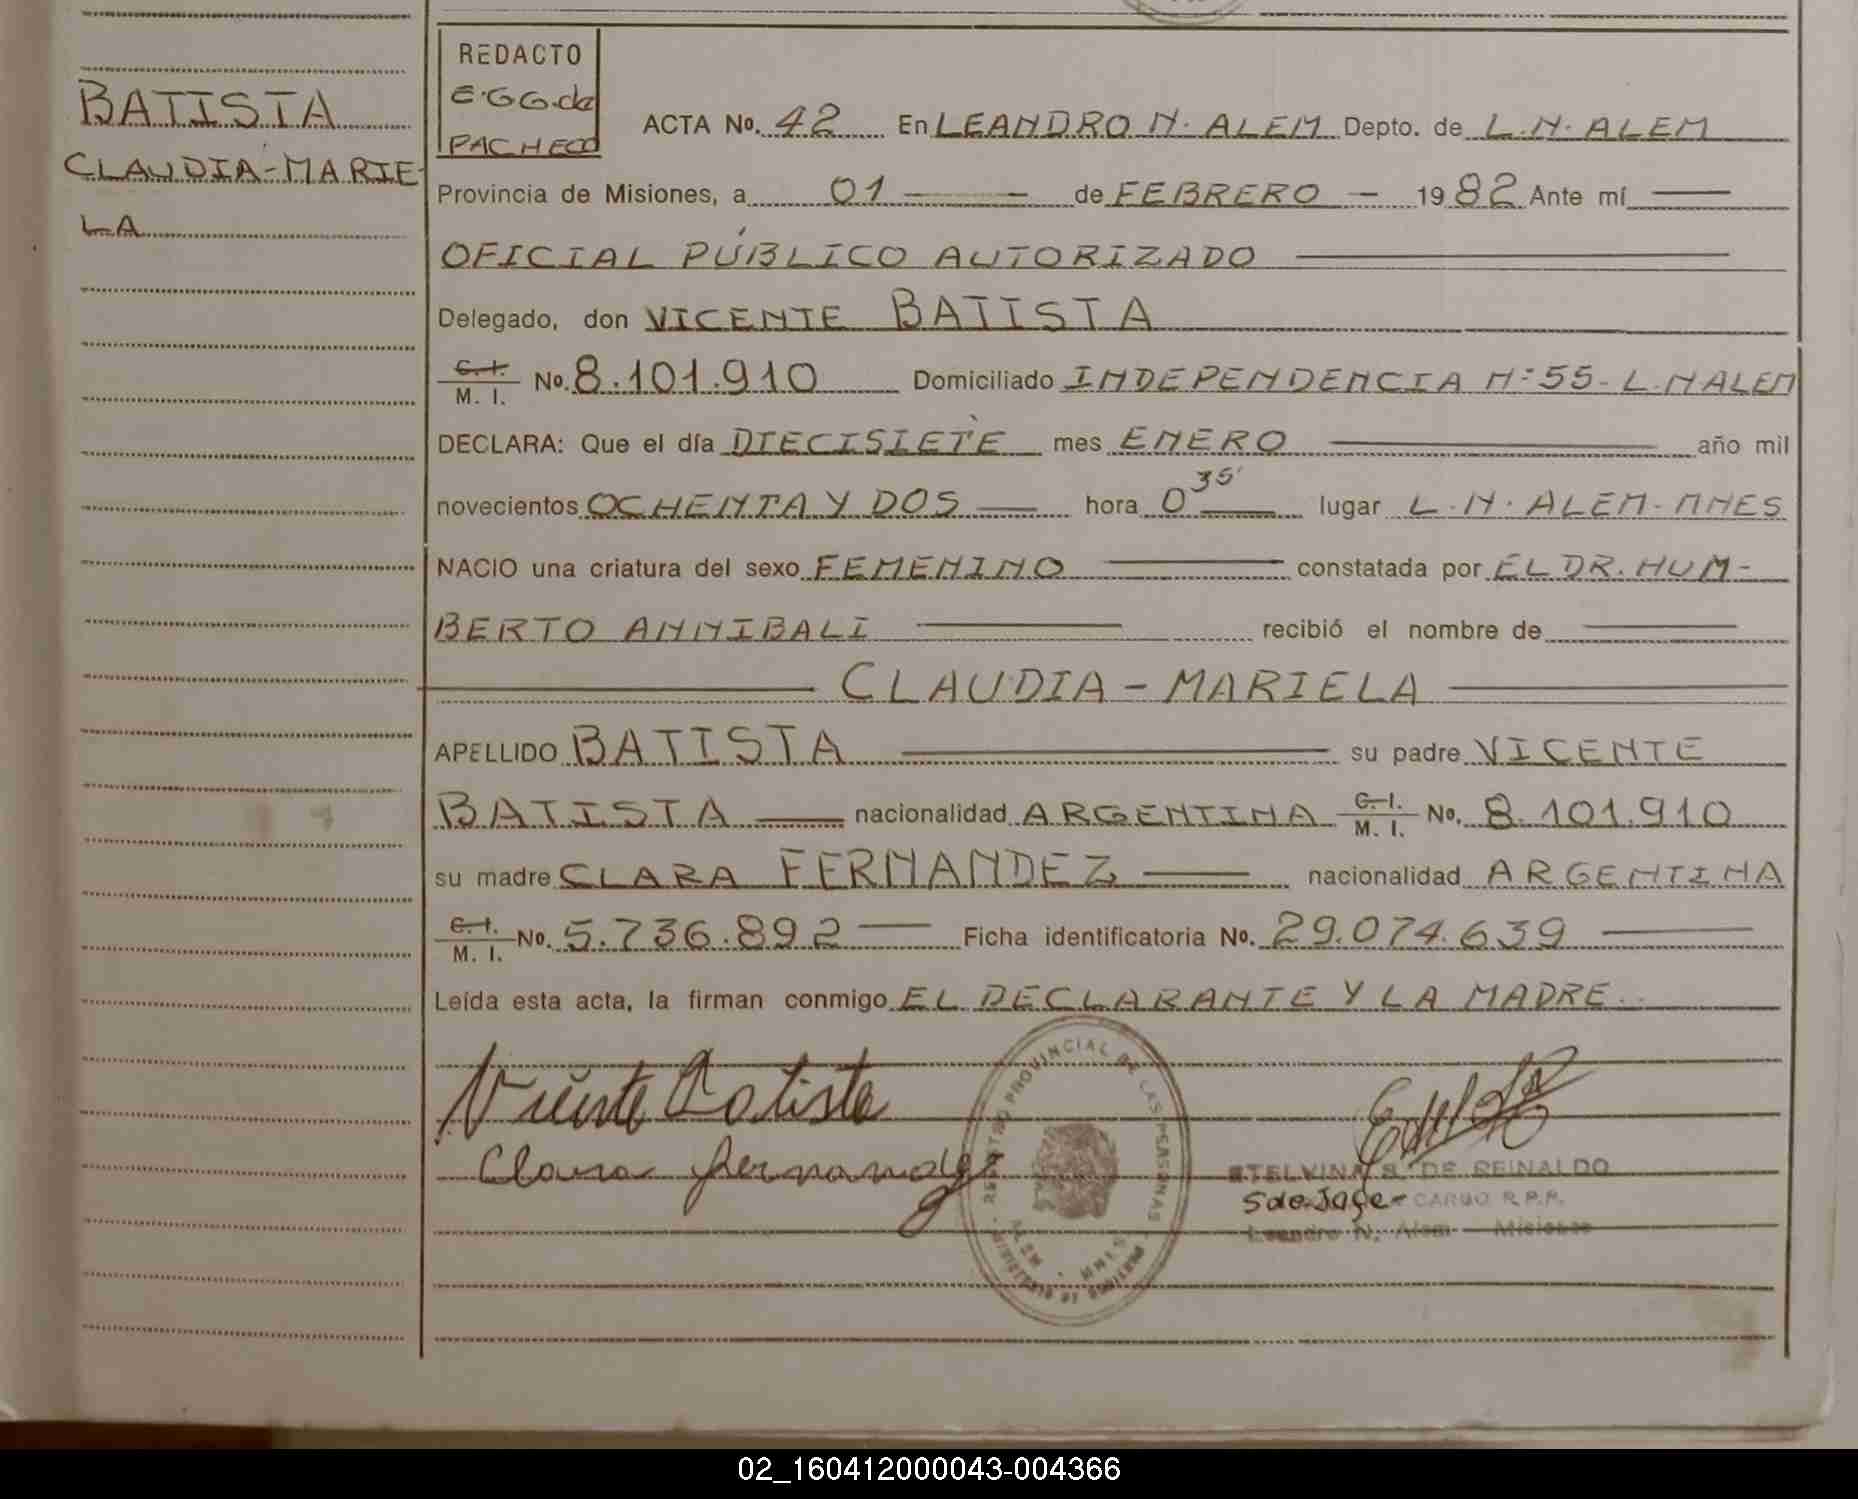 BATISTA
CLAUDIA-MARIE-
LA
REDACTO
E.GG.de
PACHECO
ACTA No. 42 En LEANDRO N. ALEM Depto. de L.N. ALEM
Provincia de Misiones, a 01 — de FEBRERO — 1982 Ante mí —
OFICIAL PÚBLICO AUTORIZADO —
Delegado, don VICENTE BATISTA
C. I. / M. I. No. 8.101.910 Domiciliado INDEPENDENCIA Nº 55- L.N ALEM
DECLARA: Que el día DIECISIETE mes ENERO — año mil
novecientos OCHENTA Y DOS — hora 0 35' — lugar L.N. ALEM-MNES
NACIO una criatura del sexo FEMENINO — constatada por EL DR. HUM-
BERTO ANNIBALI — recibió el nombre de —
— CLAUDIA - MARIELA —
APELLIDO BATISTA — su padre VICENTE
BATISTA — nacionalidad ARGENTINA C. I. / M. I. No. 8.101.910
su madre CLARA FERNANDEZ — nacionalidad ARGENTINA
C. I. / M. I. No. 5.736.892 — Ficha identificatoria No. 29.074.639 —
Leída esta acta, la firman conmigo EL DECLARANTE Y LA MADRE.
Vicente Batista
Clara fernandez
REGISTRO PROVINCIAL DE LAS PERSONAS
ALEM MNES
ETELVINA S. DE REINALDO
S de Jaçe- CARGO R.P.P.
Leandro N. Alem - Misiones
02_160412000043-004366